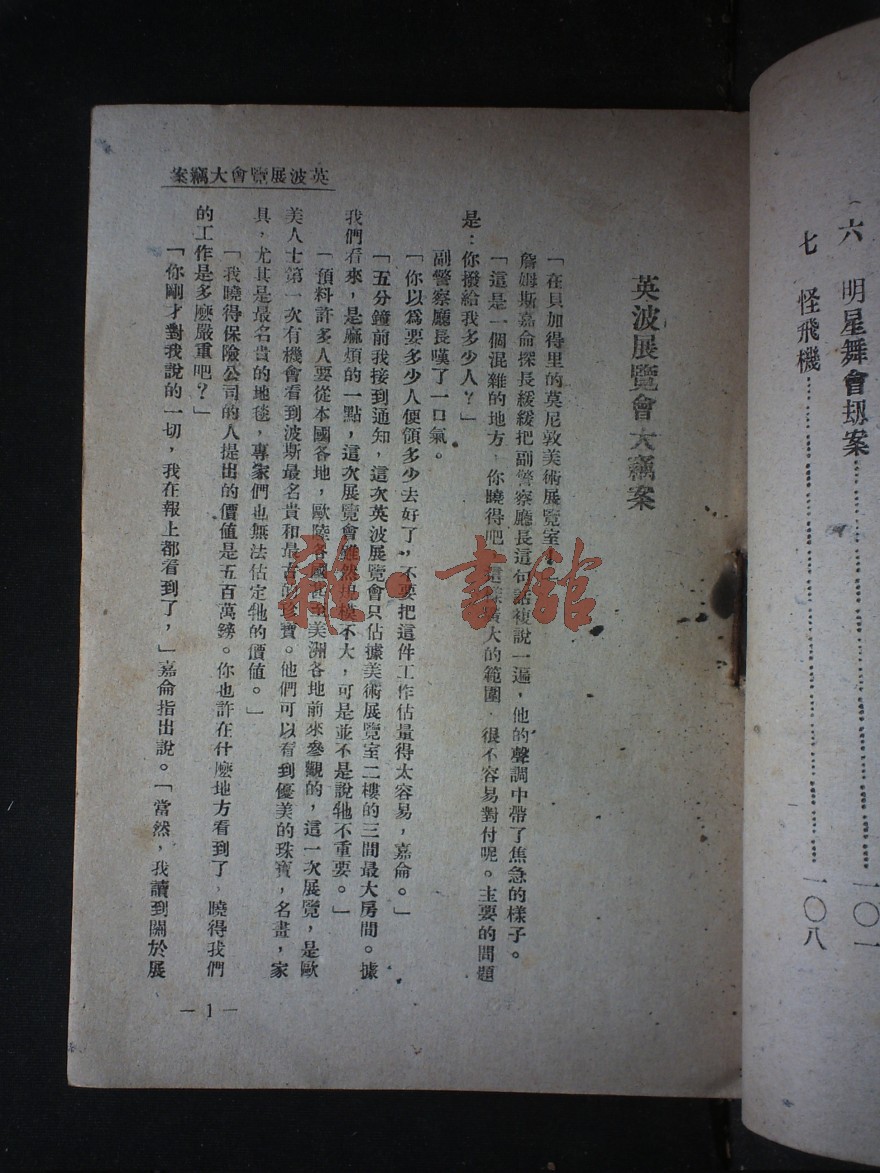 六　明星舞會刼案……………一〇一
七　怪飛機……………一〇八
英波展覽會大竊案
英波展覽會大竊案
「在貝加得里的莫尼敦美術展覽室
詹姆斯嘉侖探長緩緩把副警察廳長這句話複說一遍，他的聲調中帶了焦急的樣子。
「這是一個混雜的地方，你曉得吧，這樣廣大的範圍，很不容易對付呢。主要的問題
是：你撥給我多少人？」
副警察廳長嘆了一口氣。
「你以爲要多少人便領多少去好了，不要把這件工作估量得太容易，嘉侖。」
「五分鐘前我接到通知，這次英波展覽會只佔據美術展覽室二樓的三間最大房間。據
我們看來，是麻煩的一點，這次展覽會雖然規模不大，可是並不是說牠不重要。」
「預料許多人要從本國各地，歐陸各國甚至美洲各地前來參觀的，這一次展覽，是歐
美人士第一次有機會看到波斯最名貴和最古的珍寶。他們可以看到優美的珠寶，名畫，家
具，尤其是最名貴的地毯，專家們也無法估定牠的價值。」
「我曉得保險公司的人提出的價值是五百萬鎊。你也許在什麽地方看到了，曉得我們
的工作是多麽嚴重吧？」
「你剛才對我說的一切，我在報上都看到了，」嘉侖指出說。「當然，我讀到關於展
— 1 —
雜·書館